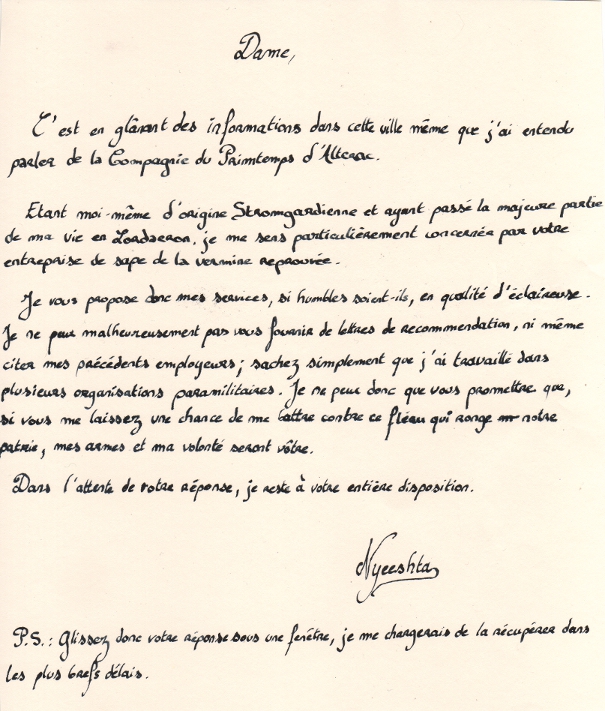 Dame,
C'est en glânant des informations dans cette ville même que j'ai entendu
parler de la Compagnie du Primtemps d'Alterac.
Etant moi-même d'origine Stromgardienne et ayant passé la majeure partie
de ma vie en Lordaeron, je me sens particulièrement concernée par votre
entreprise de sape de la vermine reprouvée.
Je vous propose donc mes services, si humbles soient-ils, en qualité d'éclaireuse.
Je ne peux malheureusement pas vous fournir de lettres de recommendation, ni même
citer mes précédents employeurs; sachez simplement que j'ai travaillé dans
plusieurs organisations paramilitaires. Je ne peux donc que vous promettre que,
si vous me laissez une chance de me battre contre ce fléau qui ronge notre
patrie, mes armes et ma volonté seront vôtre.
Dans l'attente de votre réponse, je reste à votre entière disposition.
Nyeeshta
P.S.: Glissez donc votre réponse sous une fenêtre, je me chargerais de la récupérer dans
les plus brefs délais.